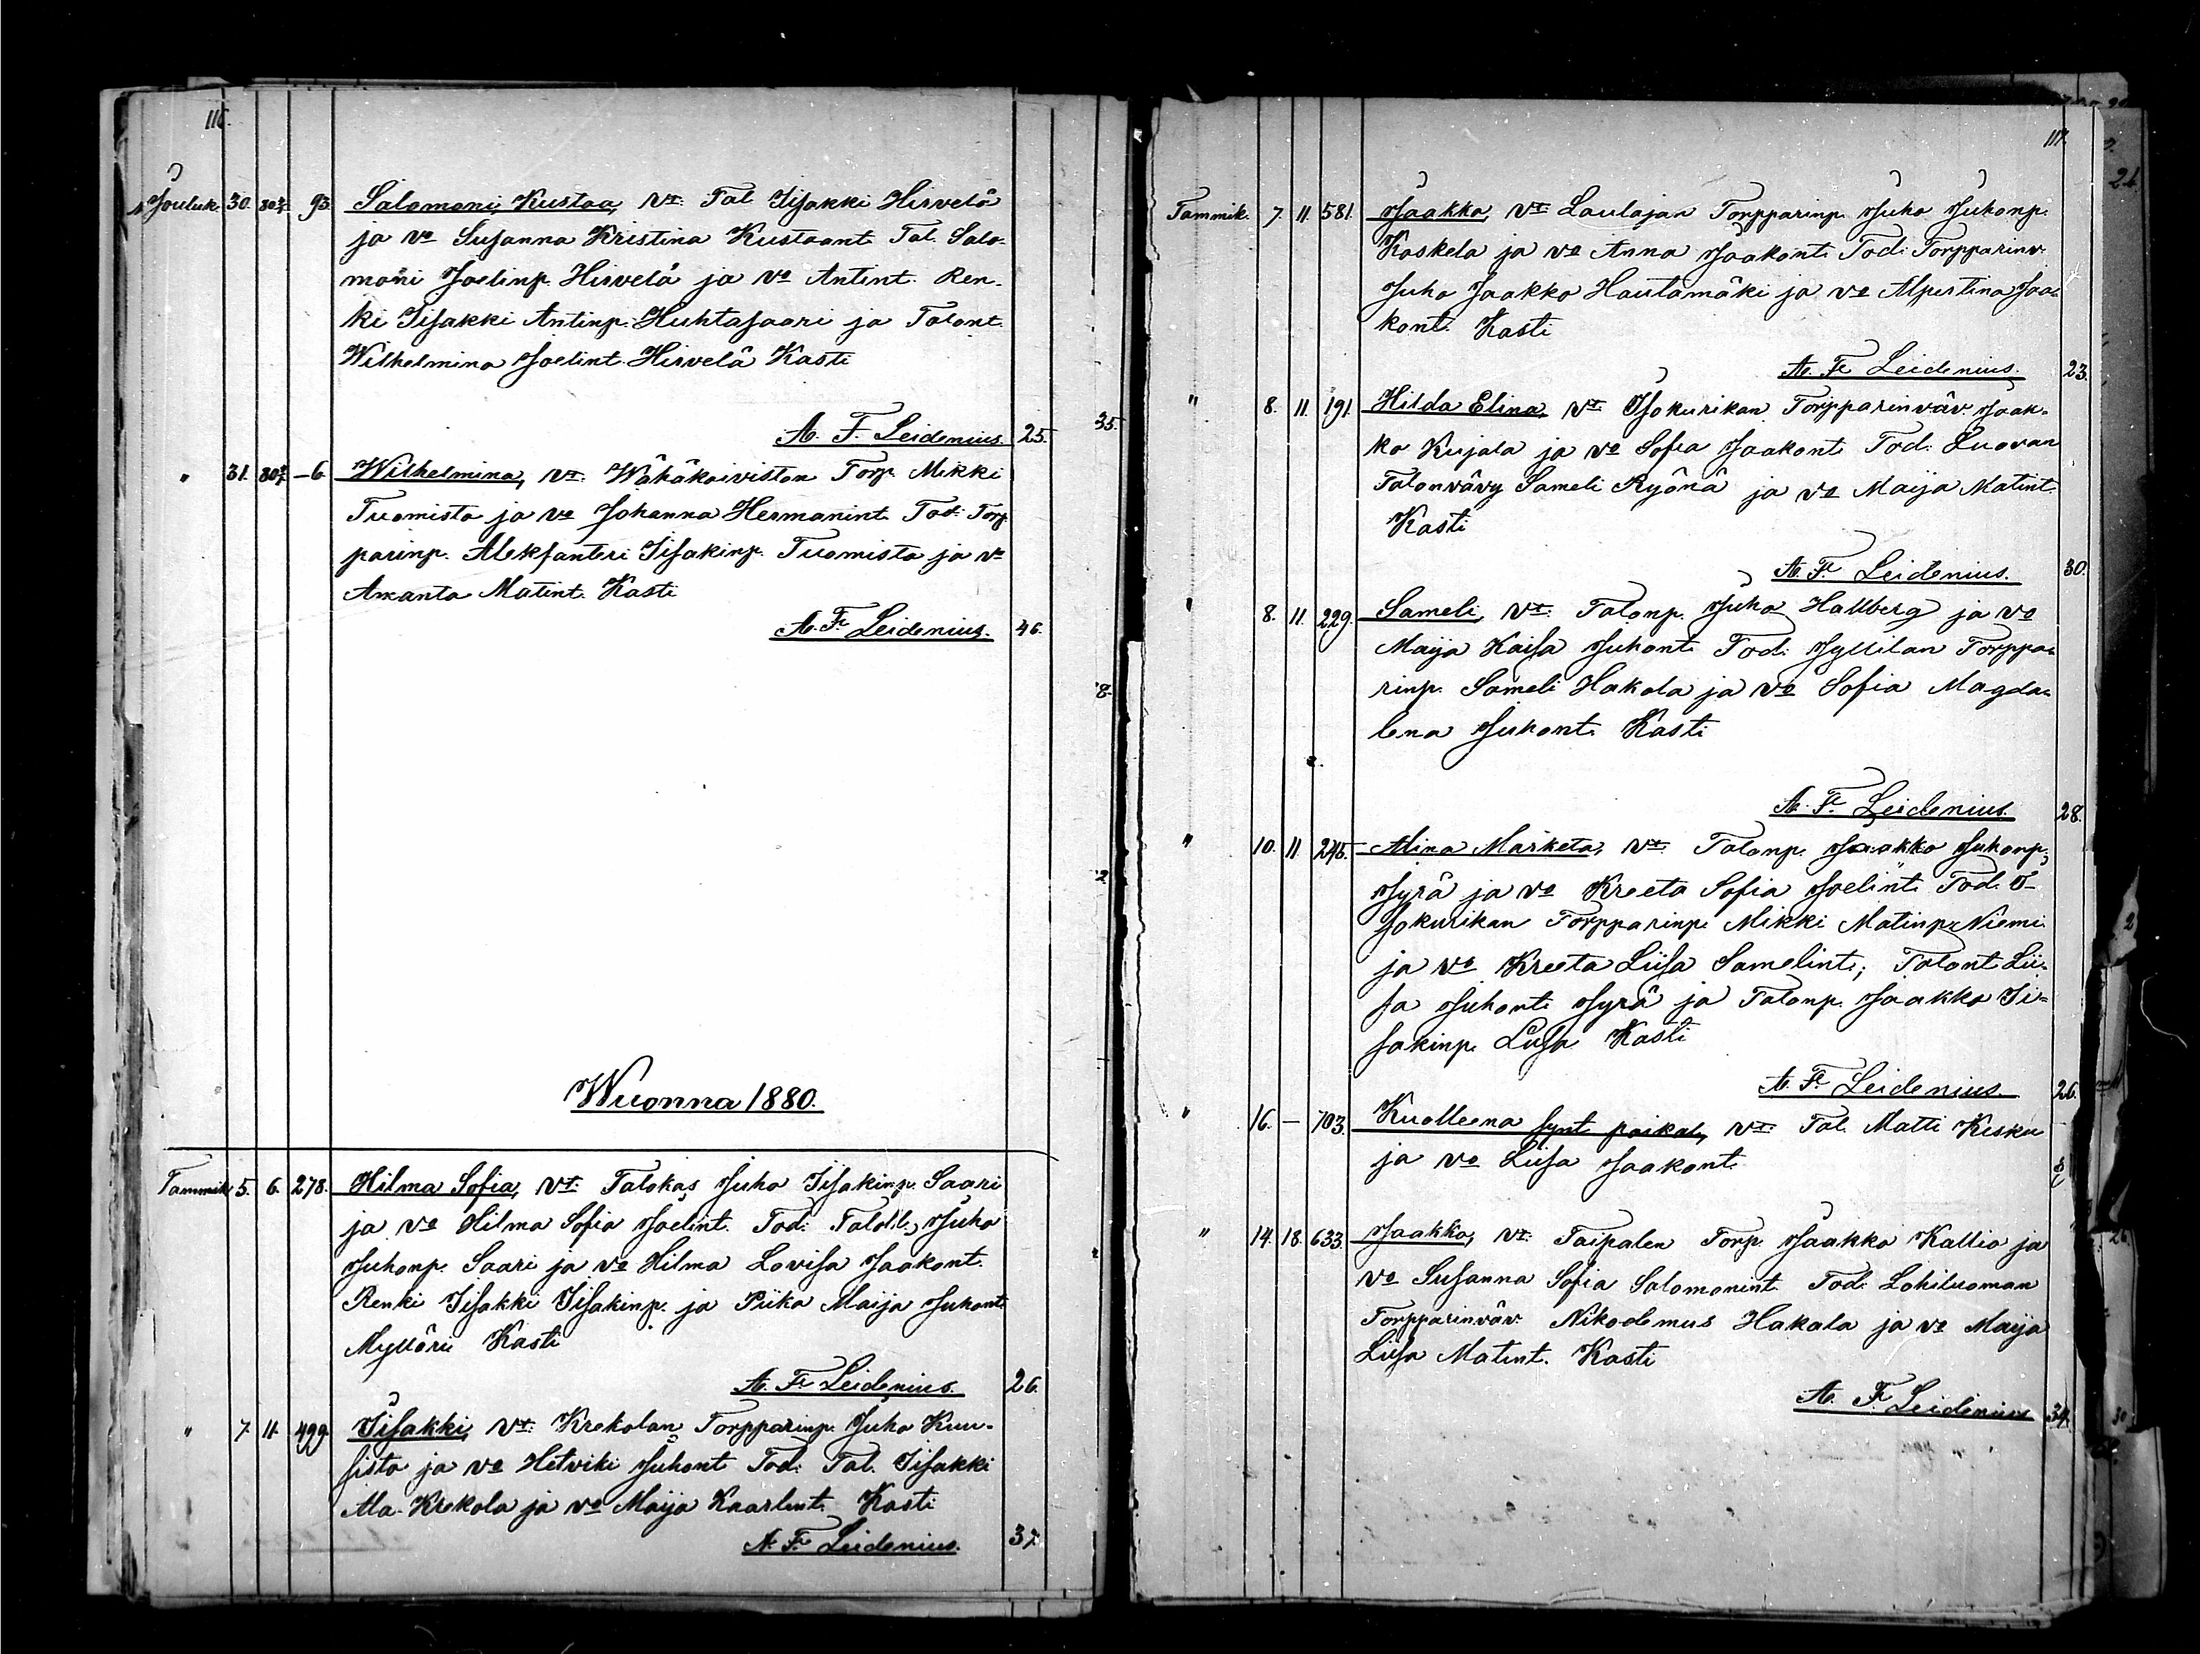 116.
Jouluk. 30. 30/12. 93. Salomoni, Kustaa, vt: Tal. Iisakki Hirvelä
ja vo Susanna Kristina Kustaant. Tal. Salo-
moni Joelinp. Hirvelä ja vo Antint. Ren-
ki Iisakki Antinp. Huhtasaari ja Talont.
Wilhelmina Joelint. Hirvelä Kasti
A. F. Leidenius. 25.
" 31. –6. Wilhelmina, vt: Wähäkoiviston Torp. Mikki
Tuomisto ja vo Johanna Hermanint. Tod: Torp-
parinp. Aleksanteri Iisakinp. Tuomisto ja vo
Amanta Matint. Kasti
A. F. Leidenius. 46.
Wuonna 1880.
Tammik. 5. 6. 278. Hilma Sofia, vt: Talokas Juho Iisakinp. Saari
ja vo Hilma Sofia Joelint. Tod: Taloll. Juho
Juhonp. Saari ja vo Hilma Lovisa Jaakont.
Renki Iisakki Iisakinp. ja Piika Maija Juhont.
Mylläri Kasti
A. F. Leidenius. 26.
" 7. 11. 499. Iisakki, vt: Krekolan Torpparinp. Juho Kuu-
sisto ja vo Hetviki Juhont. Tod: Tal. Iisakki
Ala-Krekola ja vo Maija Kaarlent. Kasti
A. F. Leidenius. 37.
117.
Tammik. 7. 11. 581. Jaakko, vt: Laulajan Torpparinp. Juho Juhonp.
Koskela ja vo Anna Jaakont. Tod: Torpparinv.
Juho Jaakko Hautamäki ja vo Alpertina Jaa-
kont. Kasti
A. F. Leidenius. 23.
" 8. 11. 191. Hilda Elina, vt: Isokurikan Torpparinväv. Jaak-
ko Kujala ja vo Sofia Jaakont. Tod: Luovan
Talonvävy Sameli Ryönä ja vo Maija Matint.
Kasti
A. F. Leidenius. 30.
" 8. 11. 229. Sameli, vt: Talonp. Juho Hallberg ja vo
Maija Kaisa Juhont. Tod: Jyllilän Torppa-
rinp. Sameli Hakola ja vo Sofia Magda-
lena Juhont. Kasti
A. F. Leidenius. 28.
" 10. 11. 245. Alina Marketa, vt: Talonp. Jaakko Juhonp.
Jyrä ja vo Kreeta Sofia Joelint. Tod: I-
sokurikan Torpparinp. Mikki Matinp. Niemi
ja vo Kreeta Liisa Samelint.; Talont. Lii-
sa Juhont. Jyrä ja Talonp. Jaakko Ii-
sakinp. Kasti
A. F. Leidenius. 26.
" 16. – 703. Kuolleena synt. poikal., vt: Tal. Matti Kesku
ja vo Liisa Jaakont.
" 14. 18. 633. Jaakko, vt: Taipalen Torp. Jaakko Kallio ja
vo Susanna Sofia Salomonint. Tod: Lohiluoman
Torpparinväv. Nikodemus Hakala ja vo Maija
Liisa Matint. Kasti
A. F. Leidenius 34.